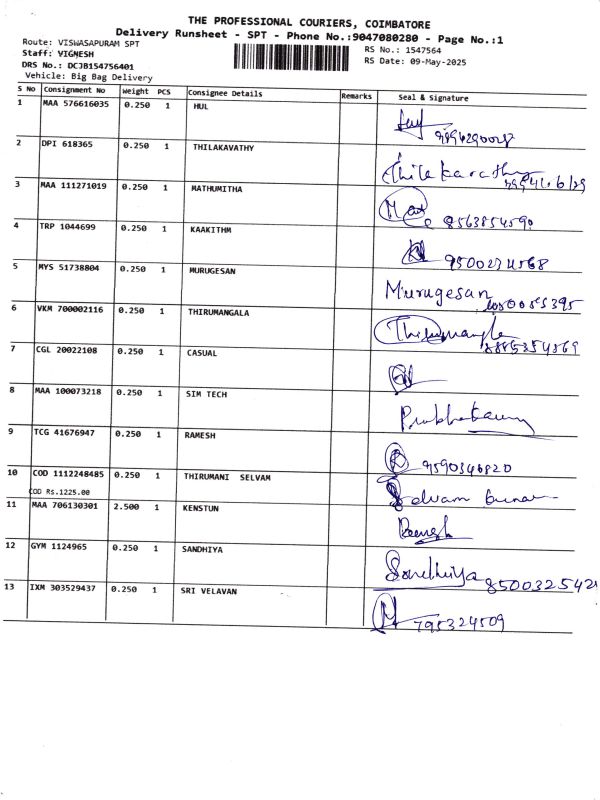 THE PROFESSIONAL COURIERS, COIMBATORE
Delivery Runsheet - SPT - Phone No.:9047080280 - Page No.:1
Route: VISWASAPURAM SPT
Staff: VIGNESH
DRS No.: DCJB154756401
Vehicle: Big Bag Delivery
RS No.: 1547564
RS Date: 09-May-2025
S No Consignment No Weight PCS Consignee Details Remarks Seal & Signature
1 MAA 576616035 0.250 1 HUL
2 DPI 618365 0.250 1 THILAKAVATHY Thilakavathy
3 MAA 111271019 0.250 1 MATHUMITHA 8563854590
4 TRP 1044699 0.250 1 KAAKITHM 9500274568
5 MYS 51738804 0.250 1 MURUGESAN Murugesan
6 VKM 700002116 0.250 1 THIRUMANGALA Thirumangla
7 CGL 20022108 0.250 1 CASUAL
8 MAA 100073218 0.250 1 SIM TECH
9 TCG 41676947 0.250 1 RAMESH 9590346820
10 COD 1112248485 0.250 1 THIRUMANI SELVAM Selvam Kumar
COD Rs.1225.00
11 MAA 706130301 2.500 1 KENSTUN
12 GYM 1124965 0.250 1 SANDHIYA Sandhiya 850032542
13 IXM 303529437 0.250 1 SRI VELAVAN 795324509